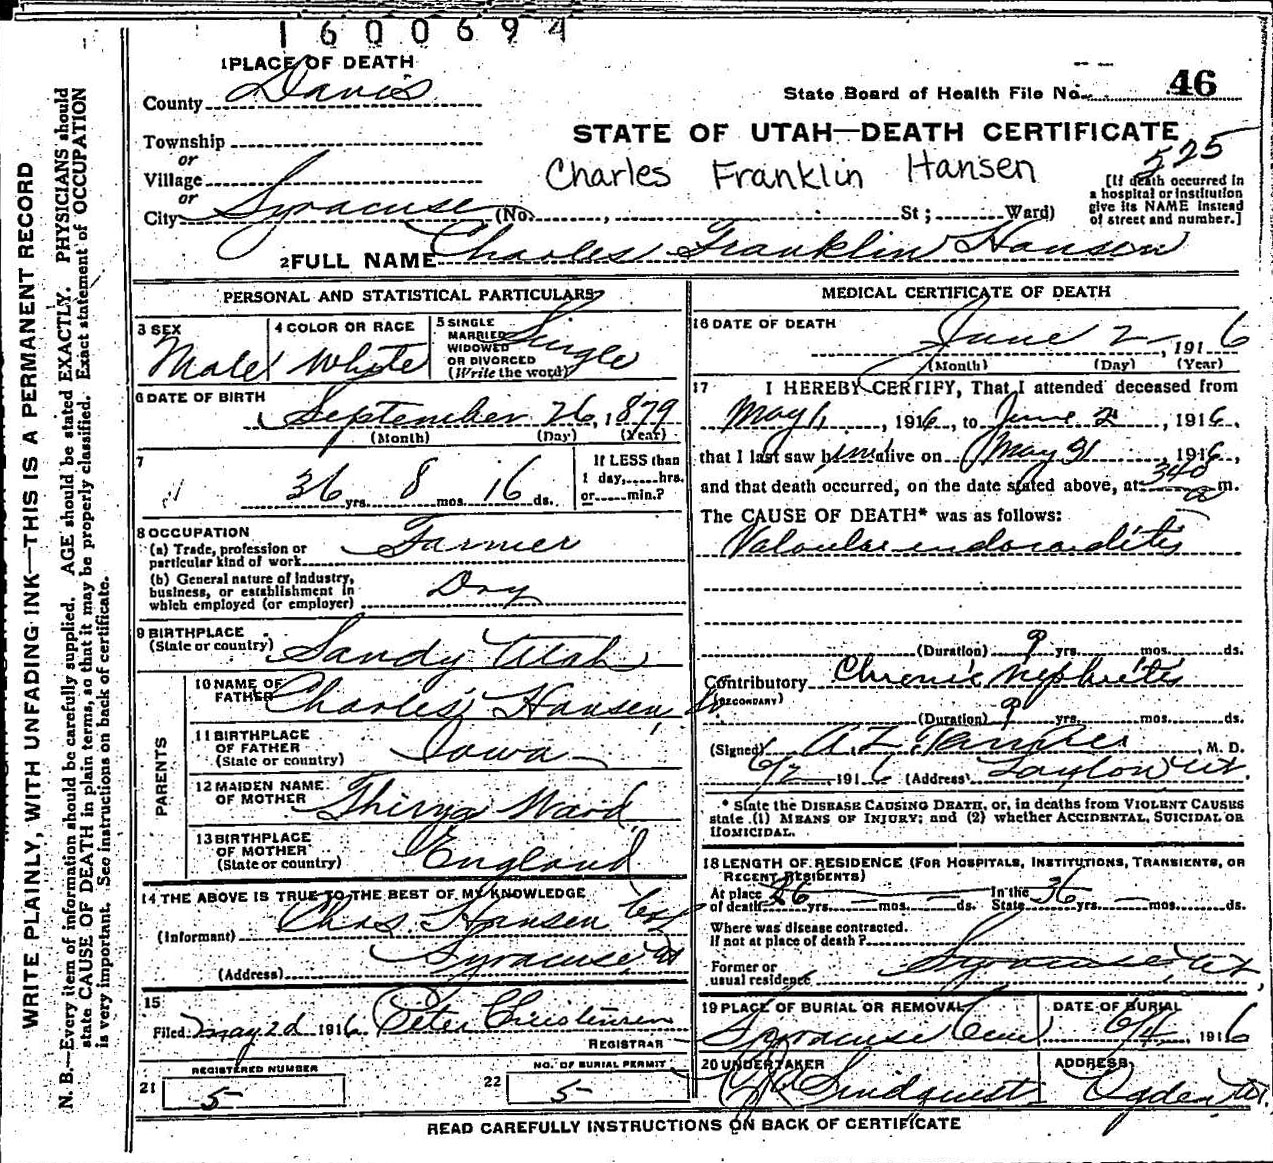 1600694
1 PLACE OF DEATH
County Davis
State Board of Health File No. 46
Township
or
Village
or
City Syracuse (No. , St ; Ward)
STATE OF UTAH—DEATH CERTIFICATE
Charles Franklin Hansen
525
[If death occurred in
a hospital or institution
give its NAME instead
of street and number.]
2 FULL NAME Charles Franklin Hansen
PERSONAL AND STATISTICAL PARTICULARS
3 SEX
Male
4 COLOR OR RACE
White
5 SINGLE
MARRIED
WIDOWED
OR DIVORCED
(Write the word)
Single
6 DATE OF BIRTH
September 26, 1879
(Month) (Day) (Year)
7
36 yrs. 8 mos. 16 ds.
If LESS than
1 day, hrs.
or min.?
8 OCCUPATION
(a) Trade, profession or
particular kind of work Farmer
(b) General nature of industry,
business, or establishment in
which employed (or employer) Dry
9 BIRTHPLACE
(State or country) Sandy Utah
PARENTS
10 NAME OF
FATHER Charles Hansen, Sr
11 BIRTHPLACE
OF FATHER
(State or country) Iowa
12 MAIDEN NAME
OF MOTHER Thirza Ward
13 BIRTHPLACE
OF MOTHER
(State or country) England
14 THE ABOVE IS TRUE TO THE BEST OF MY KNOWLEDGE
(Informant) Chas. Hansen
(Address) Syracuse Ut
15
Filed May 2d 1916 Peter Christensen
REGISTRAR
REGISTERED NUMBER
21 5
NO. OF BURIAL PERMIT
22 5
MEDICAL CERTIFICATE OF DEATH
16 DATE OF DEATH
June 2, 1916
(Month) (Day) (Year)
17 I HEREBY CERTIFY, That I attended deceased from
May 1, 1916, to June 2, 1916,
that I last saw him alive on May 31, 1916,
and that death occurred, on the date stated above, at 340 a m.
The CAUSE OF DEATH* was as follows:
Valvular endocarditis
(Duration) 9 yrs. mos. ds.
Contributory Chronic Nephritis
(SECONDARY)
(Duration) 9 yrs. mos. ds.
(Signed) A. Z. Tanner, M. D.
6/2 1916 (Address) Layton Ut.
* State the DISEASE CAUSING DEATH, or, in deaths from VIOLENT CAUSES
state (1) MEANS OF INJURY; and (2) whether ACCIDENTAL, SUICIDAL OR
HOMICIDAL.
18 LENGTH OF RESIDENCE (FOR HOSPITALS, INSTITUTIONS, TRANSIENTS, OR
RECENT RESIDENTS)
At place In the
of death 26 yrs. — mos. — ds. State 36 yrs. — mos. ds.
Where was disease contracted,
if not at place of death?
Former or
usual residence Syracuse Ut.
19 PLACE OF BURIAL OR REMOVAL
Syracuse Cem
DATE OF BURIAL
6/4, 1916
20 UNDERTAKER
Lindquist
ADDRESS
Ogden Ut.
READ CAREFULLY INSTRUCTIONS ON BACK OF CERTIFICATE
WRITE PLAINLY, WITH UNFADING INK—THIS IS A PERMANENT RECORD
N. B.—Every item of information should be carefully supplied. AGE should be stated EXACTLY. PHYSICIANS should
state CAUSE OF DEATH in plain terms, so that it may be properly classified. Exact statement of OCCUPATION
is very important. See instructions on back of certificate.